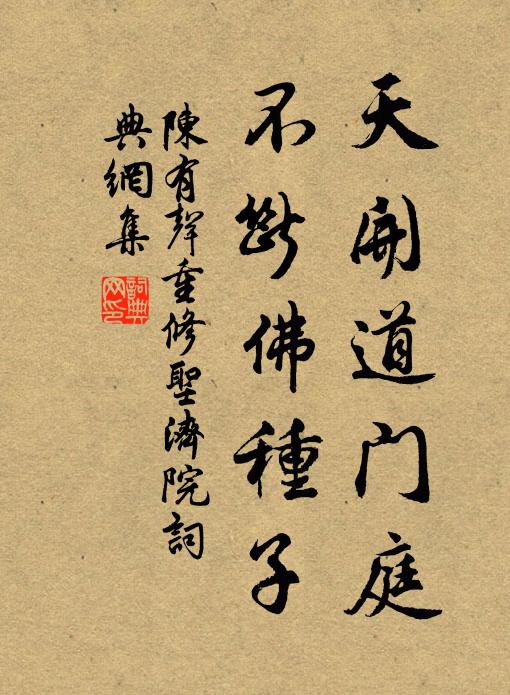 天開道门庭
不斷佛種子
陳有聲重修聖濟院詞
典網集
詞典网印